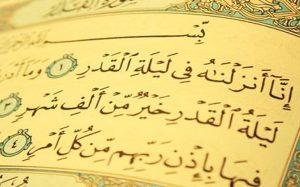 بِسْـ
إِنَّآ أَنزَلْنَٰهُ فِى لَيْلَةِ ٱلْقَدْرِ ١ وَمَآ أَدْر
لَيْلَةُ ٱلْقَدْرِ خَيْرٌ مِّنْ أَلْفِ شَهْرٍ ٣
فِيهَا بِإِذْنِ رَبِّهِم مِّن كُلِّ أَمْرٍ ٤